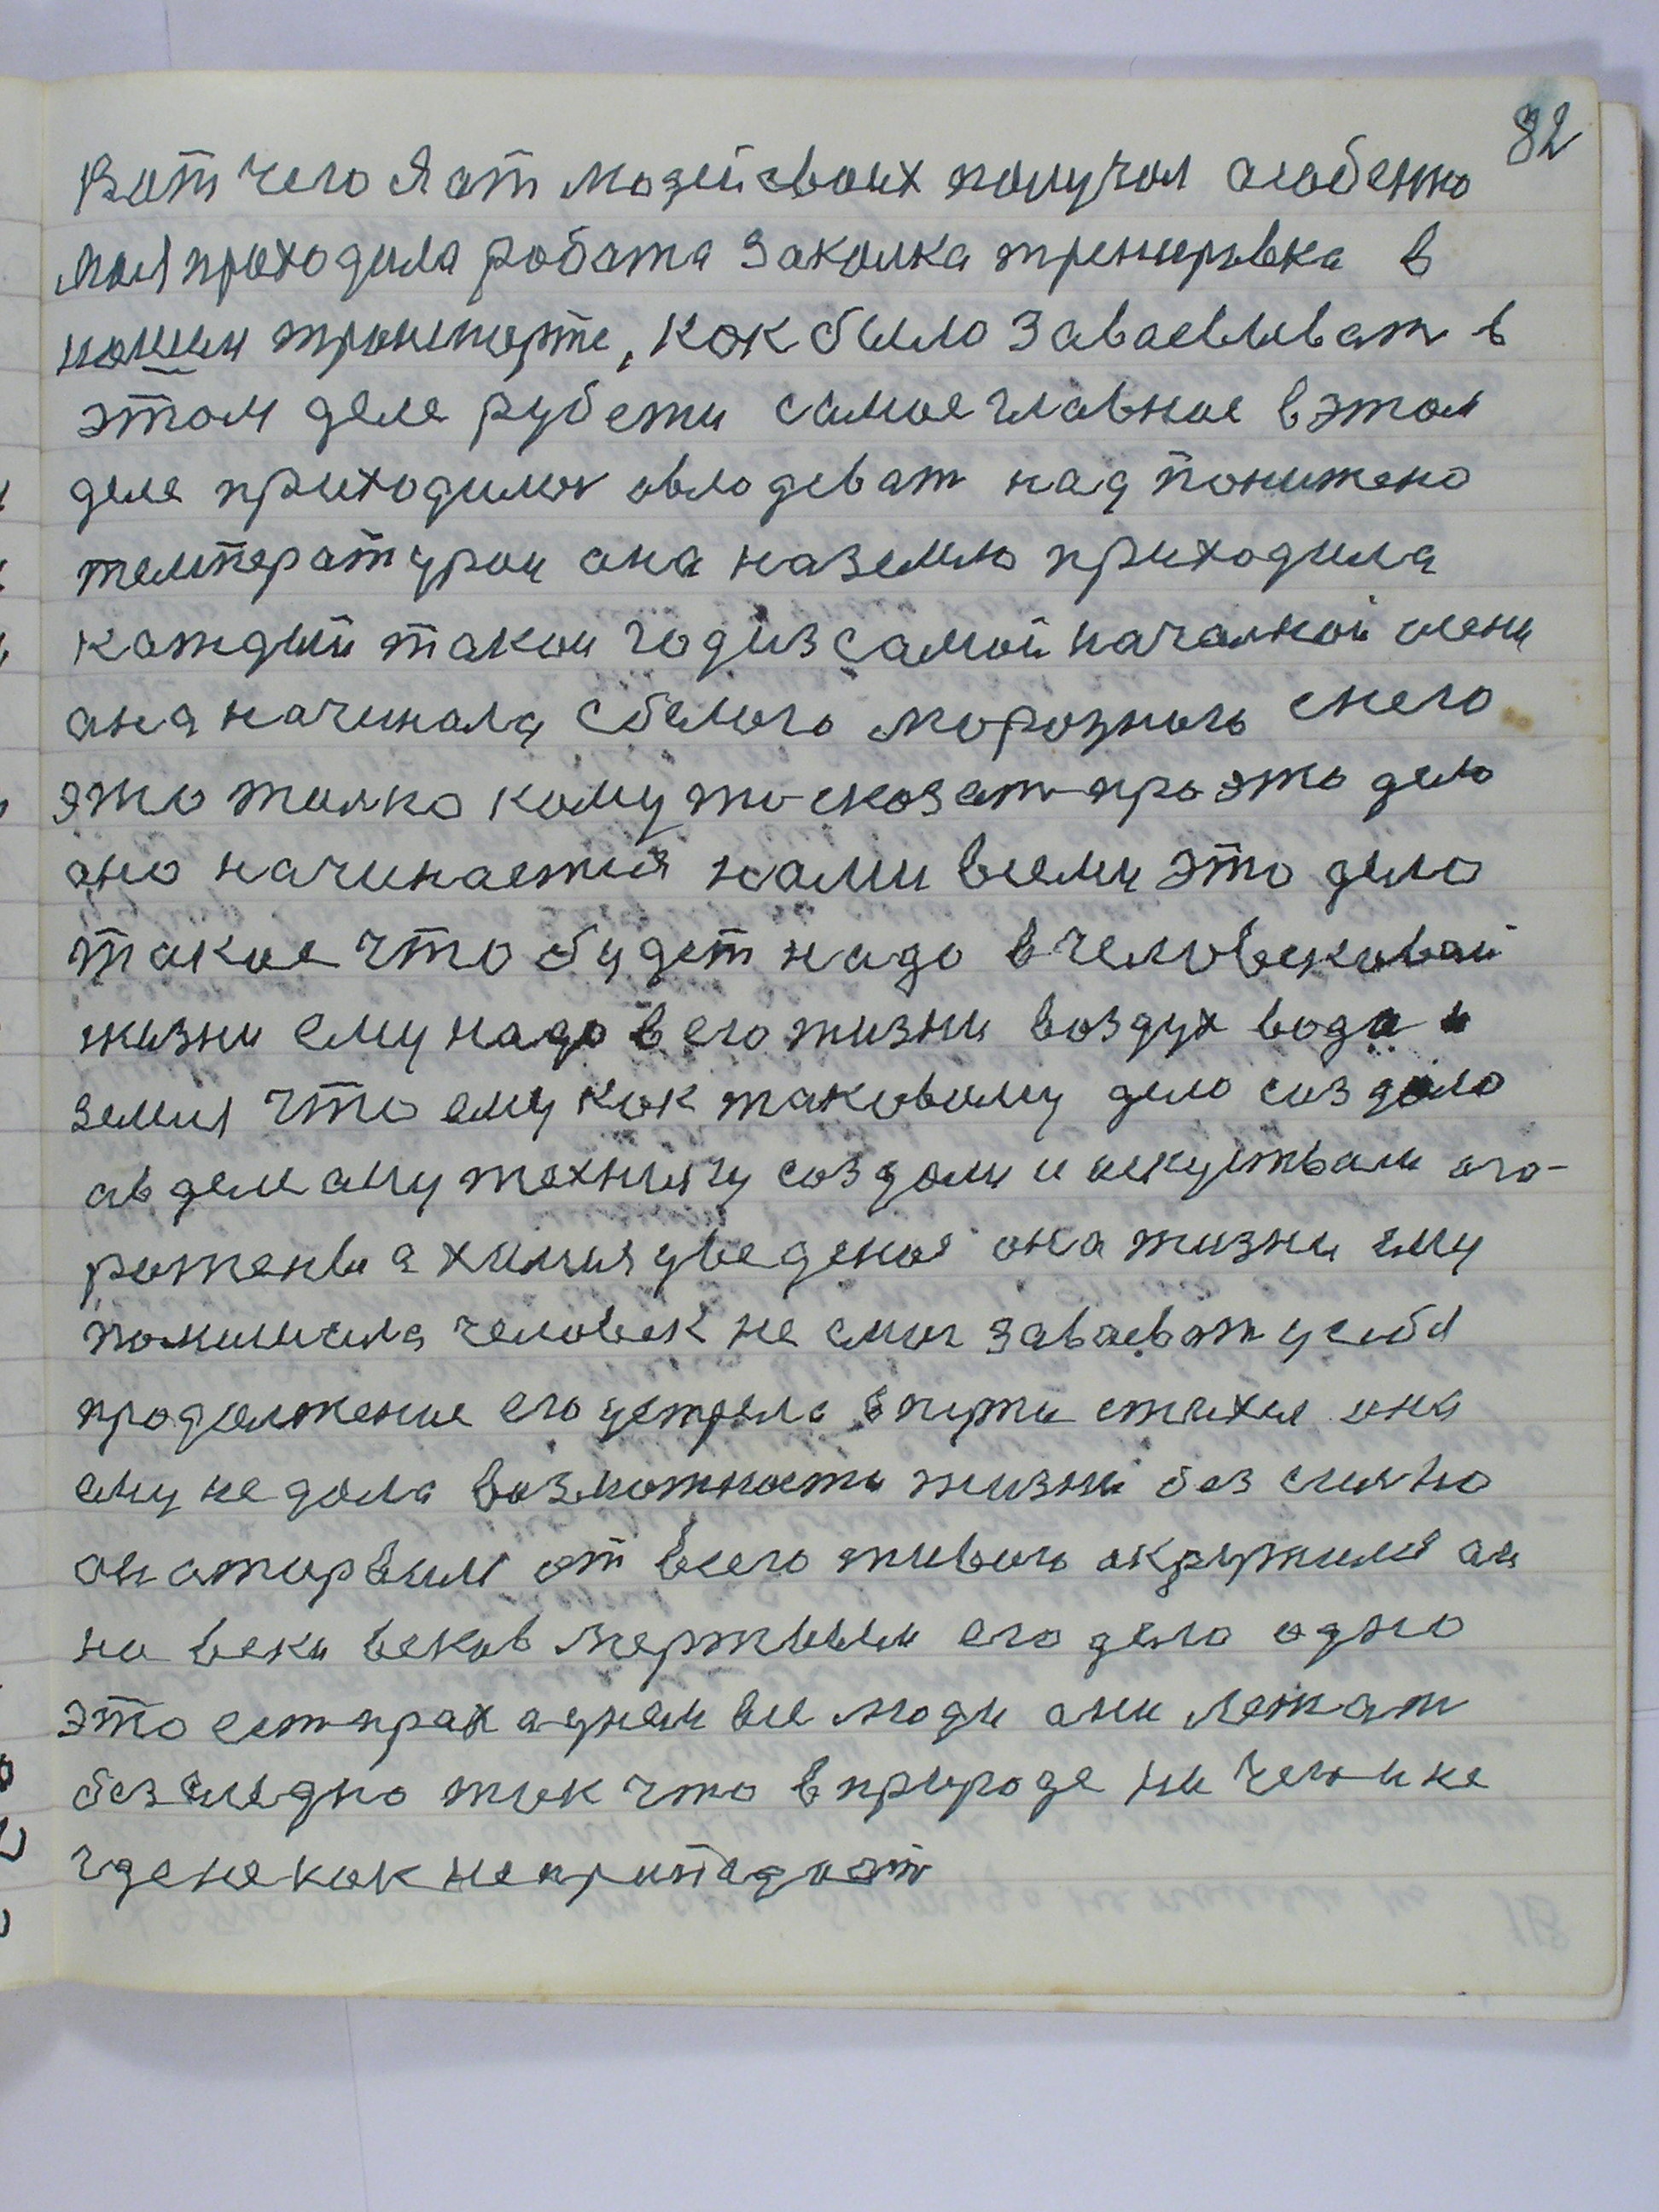 82
Вот чего Я от людей своих получал особенно
моя проходила робота Заколка тренировка в
нашем транспорте, Кок было Заваевыват в
этом деле рубежи самое главное в этом
деле приходилос овлодеват над понижено
температурои она на землю приходила
каждый такои год из самой началной осени
она начинала с белого морозного снего
это толко кому то сказат про это дело
оно начинается нами всеми это дело
такое что будет надо в человековай
жизни ему надо в его жизни воздух вода и
земля что ему кок таковому дело создало
а в деле ему технику создали и искуствам ого-
рожены а химия уведеноя она жизни ему
человек не смог заваеват у себя
продолжение его устрела в пути стихия она
ему не дала возможности жизни без силно
он оторвался от всего живого окружился он
на веки веков мертвым его дело одно
это ест прах а у нем все люди они лежат
безследно так что в природе ни чего и не
где не как не припадает